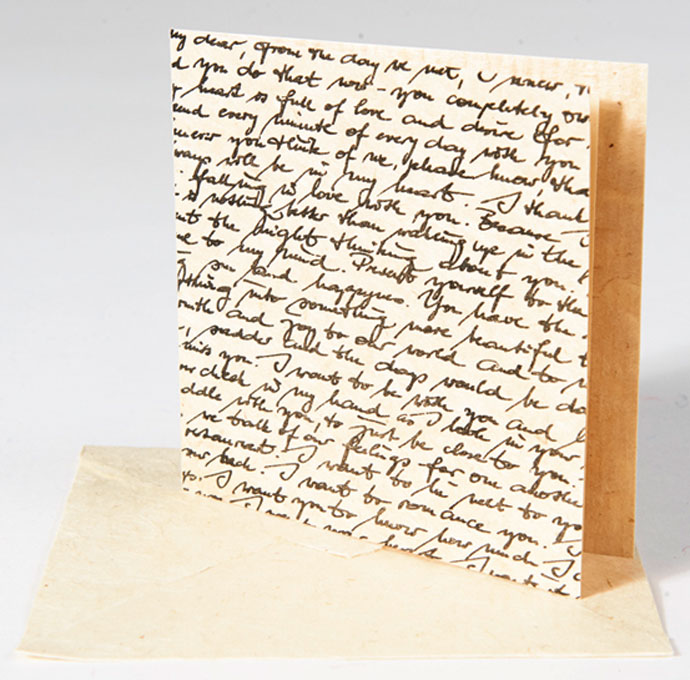 my dear, from the day we met, I knew,
you do that now - you completely
heart is full of love and desire for
end every minute of every day with you
you think of me please know, that
ways will be in my heart. I thank
falling in love with you. Because
is nothing better than waking up in the
the night thinking about you.
to my mind. Present yourself to the
sun and happyness. You have the
thing into something more beautiful
and joy to our world and to
sadder and the days would be
miss you. I want to be with you and
cheek in my hand as I look in your
ddle with you, to just be close to you.
we talk of our feelings for one another
restaurant. I want to lie next to yo
bed. I want to romance you. I
I want you to know how much I